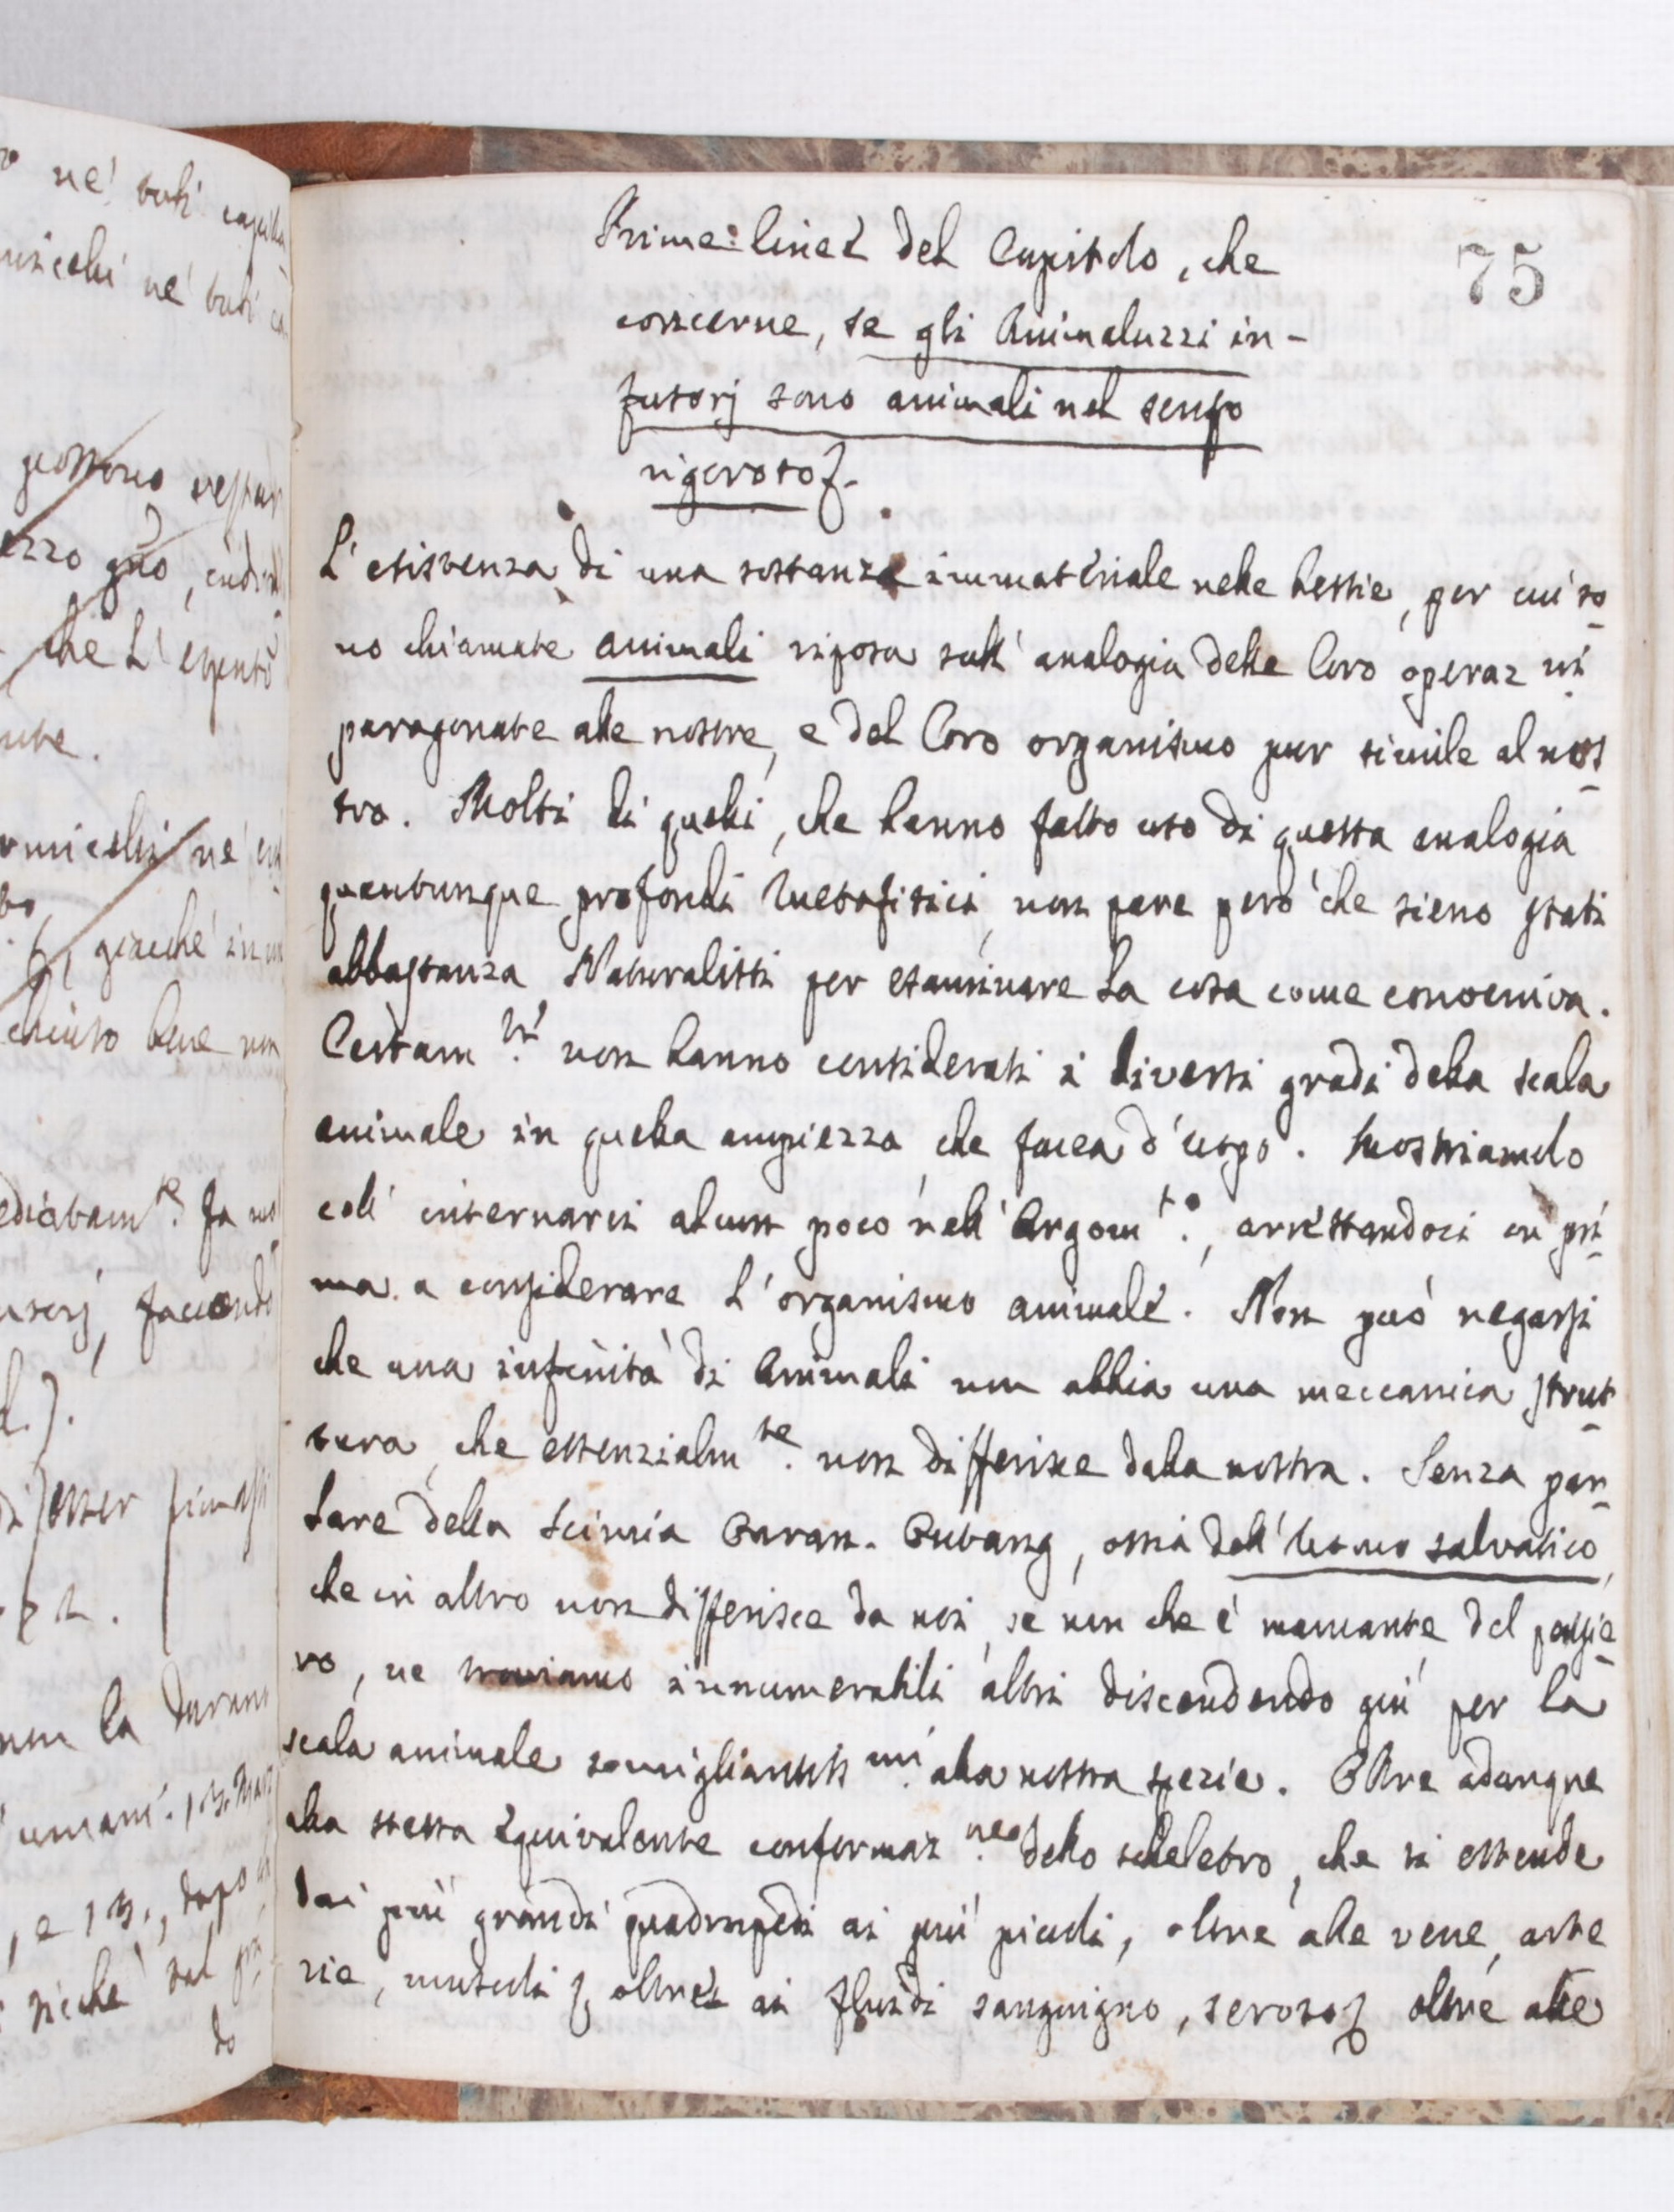 75
Prime linee del Capitolo, che
concerne, se gli Animaluzzi in-
fusorj sono animali nel senso
rigoroso &.
L'esistenza di una sostanza immateriale nelle bestie, per cui so
no chiamate animali riposa sull'analogia delle loro operaz ni
paragonate alle nostre, e del loro organismo pur simile al nos
tro. Molti di quelli, che hanno fatto uso di questa analogia
quantunque profondi Metafisici, non pare però che sieno stati
abbastanza Naturalisti per esaminare la cosa come conveniva.
Certam.te non hanno considerati i diversi gradi della scala
animale in quella ampiezza, che facea d'uopo. Mostriamolo
coll'internarci alcun poco nell'Argom.to, arrestandoci in pri
ma a considerare l'organismo animale. Non può negarsi
che una infinità di Animali non abbia una meccanica strut
tura, che essenzialm.te non differisce dalla nostra. Senza par
lare della Scimia Ouran-Outang, ossia dell'Uomo salvatico,
che in altro non differisce da noi, se non che è mancante del pensie
ro, ne troviamo innumerabili altri discendendo giù per la
scala animale somigliantiss.mi alla nostra spezie. Oltre adunque
alla stessa equivalente conformaz.ne dello scheletro, che si estende
dai più grandi quadrupedi ai più piccoli, oltre alle vene, arte
rie, muscoli &, oltre ai fluidi sanguigno, seroso & oltre alle
ne' tubi
ne' tubi
possono
che l'
ne'
, giacché in
bene non
fa
, facendo
esser
non la
umani.
, e 13., dopo
sicché dal
do